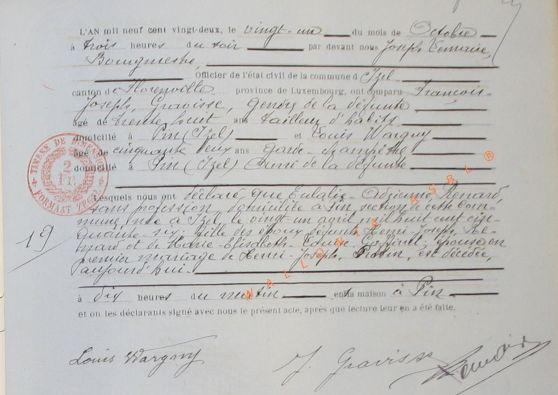 L'AN mil neuf cent vingt-deux, le vingt-un du mois de Octobre
à trois heures du soir par devant nous Joseph Lemaire,
Bourgmestre,
Officier de l'état civil de la commune d'Izel
canton d Florenville province de Luxembourg, ont comparu François-
Joseph, Gravisse, gendre de la défunte
âgé de trente huit ans tailleur d'habits
domicilié à Pin (Izel) et Louis Wargny
âgé de cinquante deux ans Garde-champêtre
domicilié à Pin (Izel) de la défunte
Lesquels nous ont déclaré que Eulalie-Adjenne, Renard,
sans profession, domiciliée à Pin section de cette com-
mune, née à Izel, le vingt un avril mil huit cent cin-
quante six, fille des époux Henri-Joseph, Re-
nard et de Marie-Elisabeth épouse en
premier mariage de Henri-Joseph, est décédée,
aujourd'hui
à dix heures du matin en sa maison à Pin
et ont les déclarants signé avec nous le présent acte, après que lecture leur en a été faite.
19
TIMBRE DE DIMENSION
2
FR.
FORMAAT ZEGEL
WALLONIA ASBL ®
Louis Wargny
J. Gravisse
Lemaire